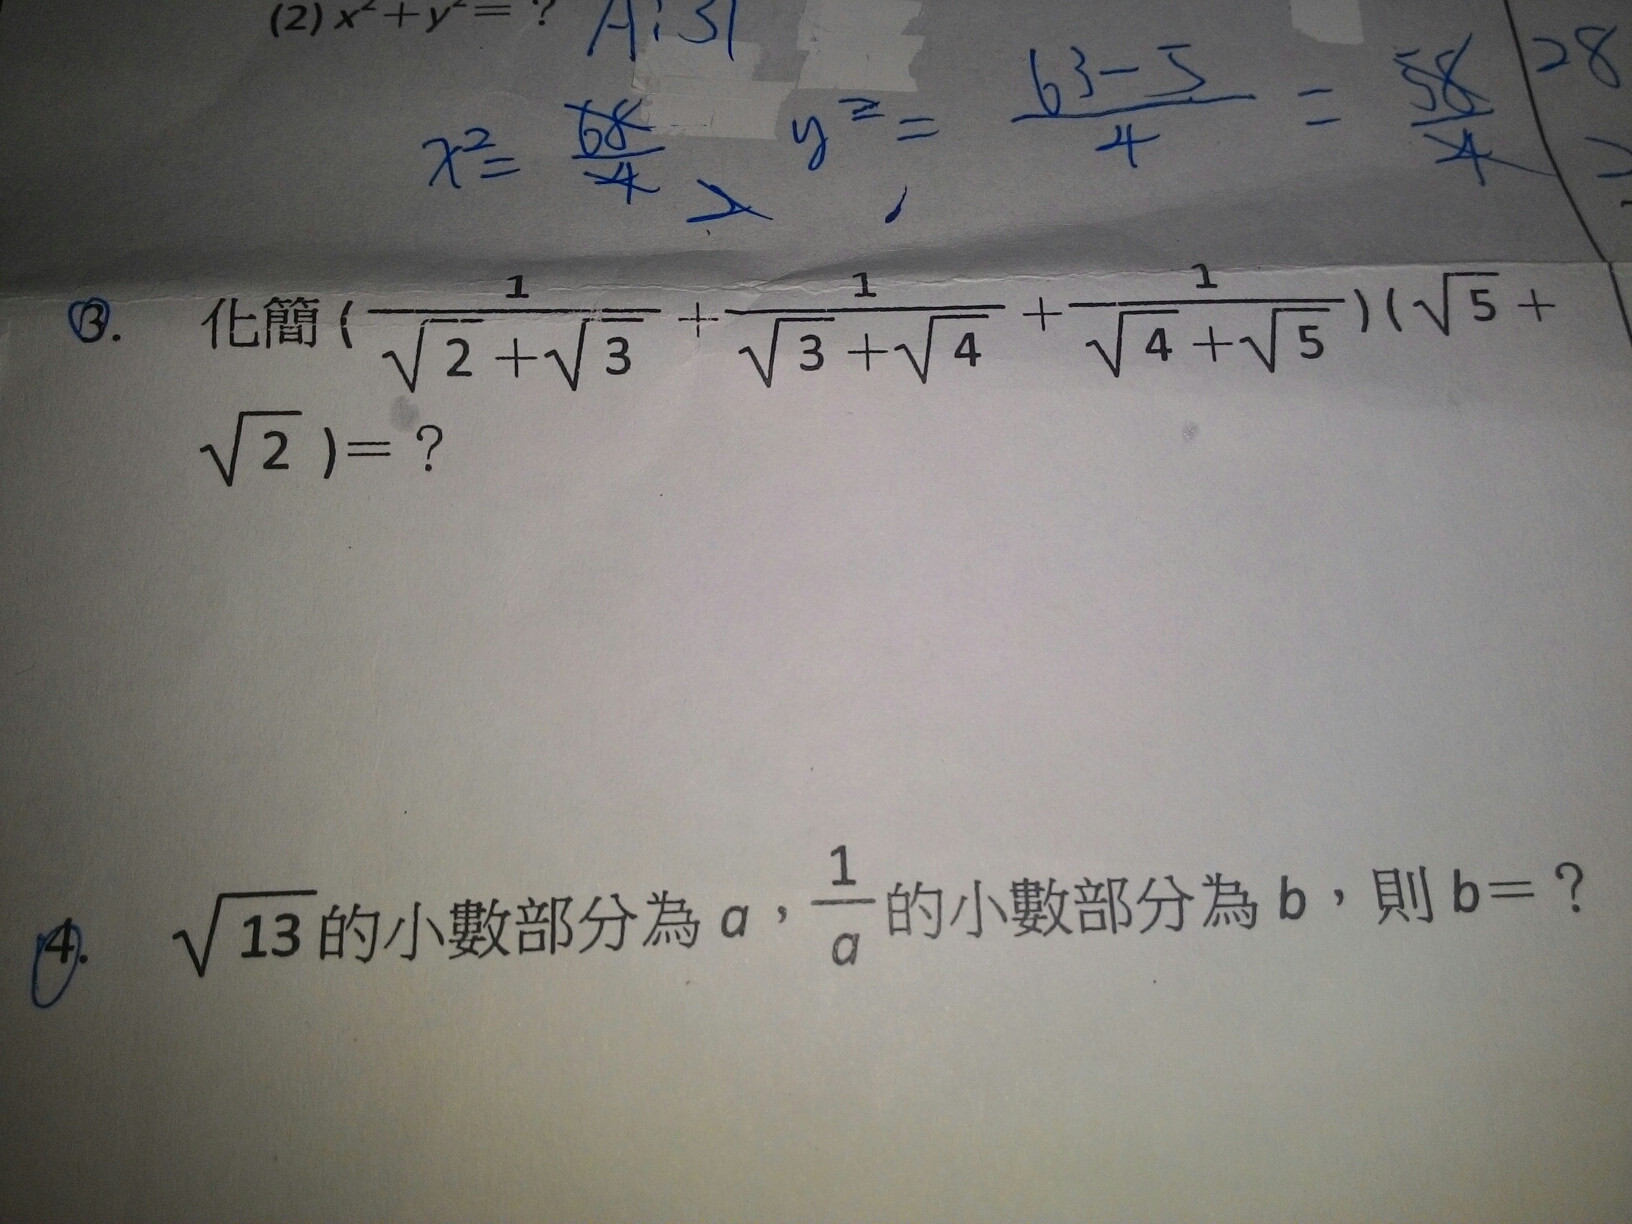 (2) x²+y²=？ A:31
x²= 68/4 , y²= 63-5/4 = 58/4
28
3. 化簡(1/√2+√3 + 1/√3+√4 + 1/√4+√5)(√5+
√2)=？
4. √13的小數部分為a，1/a的小數部分為b，則b=？